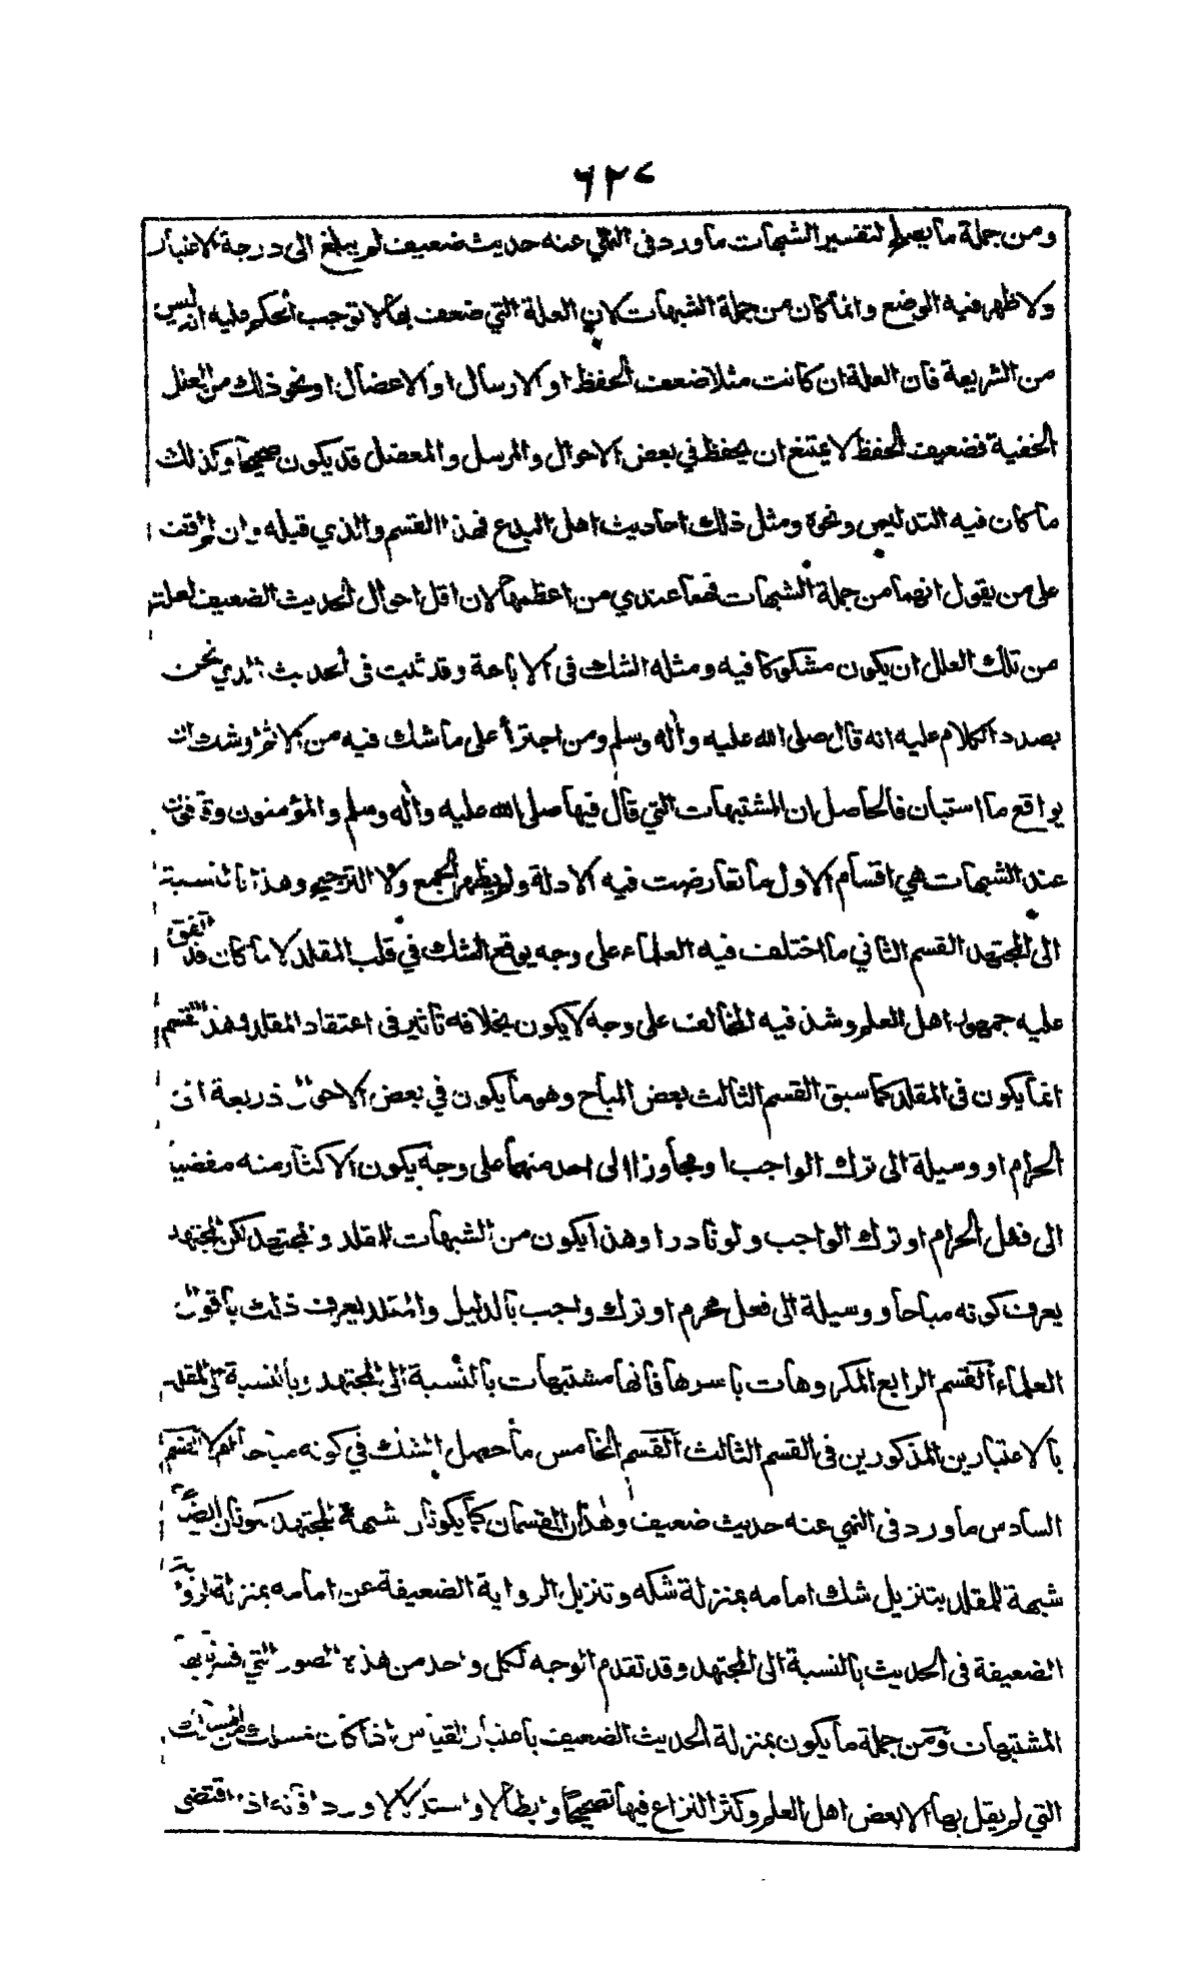 ٦٢٨
ومن جملة ما يصلح لتفسير الشبهات ما ورد في النهي عنه حديث ضعيف لم يبلغ الى درجة الاعتبار
ولا ظهر فيه الوضع وانما كان من جملة الشبهات لان العلة التي ضعف بها لا توجب الحكم عليه انه ليس
من الشريعة فان العلة ان كانت مثلا ضعف الحفظ او الارسال او الاعضال او نحو ذلك من العلل
الخفية فضعيف الحفظ لا يمتنع ان يحفظ في بعض الاحوال والمرسل والمعضل قد يكون صحيحا وكذلك
ما كان فيه التدليس ونحوه ومثل ذلك احاديث اهل البدع فهذا القسم والذي قبله وان لم اقف
على من يقول انهما من جملة الشبهات فهما عندي من اعظمها لان اقل احوال الحديث الضعيف لعلته
من تلك العلل ان يكون مشكوكا فيه ومثله الشك في الاباحة وقد ثبت في الحديث الذي نحن
بصدد الكلام عليه انه قال صلى الله عليه وآله وسلم ومن اجترأ على ما شك فيه من الاثم اوشك ان
يواقع ما استبان فالحاصل ان المشتبهات التي قال فيها صلى الله عليه وآله وسلم والمؤمنون وقافون
عند الشبهات هي اقسام الاول ما تعارضت فيه الادلة ولم يظهر الجمع ولا الترجيح وهذا بالنسبة
الى المجتهد القسم الثاني ما اختلف فيه العلماء على وجه يوقع الشك في قلب المقلد لا ما كان قد اتفق
عليه جمهور اهل العلم وشذ فيه المخالف على وجه لا يكون بخلافه تأثير في اعتقاد المقلد وهذا القسم
انما يكون في المقلد كما سبق القسم الثالث بعض المباح وهو ما يكون في بعض الاحوال ذريعة الى
الحرام او وسيلة الى ترك الواجب او مجاوزا الى احد منهما على وجه يكون الاكثار منه مفضيا
الى فعل الحرام او ترك الواجب ولو نادرا وهذا يكون من الشبهات للمقلد والمجتهد لكن المجتهد
يعرف كونه مباحا ووسيلة الى فعل محرم او ترك واجب بالدليل والمقلد يعرف ذلك باقوال
العلماء القسم الرابع المكروهات باسرها فانها مشتبهات بالنسبة الى المجتهد وبالنسبة الى المقلد
بالاعتبارين المذكورين في القسم الثالث القسم الخامس ما حصل الشك في كونه مباحا ام لا القسم
السادس ما ورد في النهي عنه حديث ضعيف وهذان القسمان كما يكونان شبهة للمجتهد يكونان ايضا
شبهة للمقلد بتنزيل شك امامه بمنزلة شكه وتنزيل الرواية الضعيفة عن امامه بمنزلة الرواية
الضعيفة في الحديث بالنسبة الى المجتهد وقد تقدم الوجه لكل واحد من هذه الصور التي فسرنا بها
المشتبهات ومن جملة ما يكون بمنزلة الحديث الضعيف باعتبار القياس اذا كان بمسلك من المسالك
التي لم يقل بها الا بعض اهل العلم وكثر النزاع فيها تصحيحا وابطالا واستدلالا وردا فانه اذا اقتضى